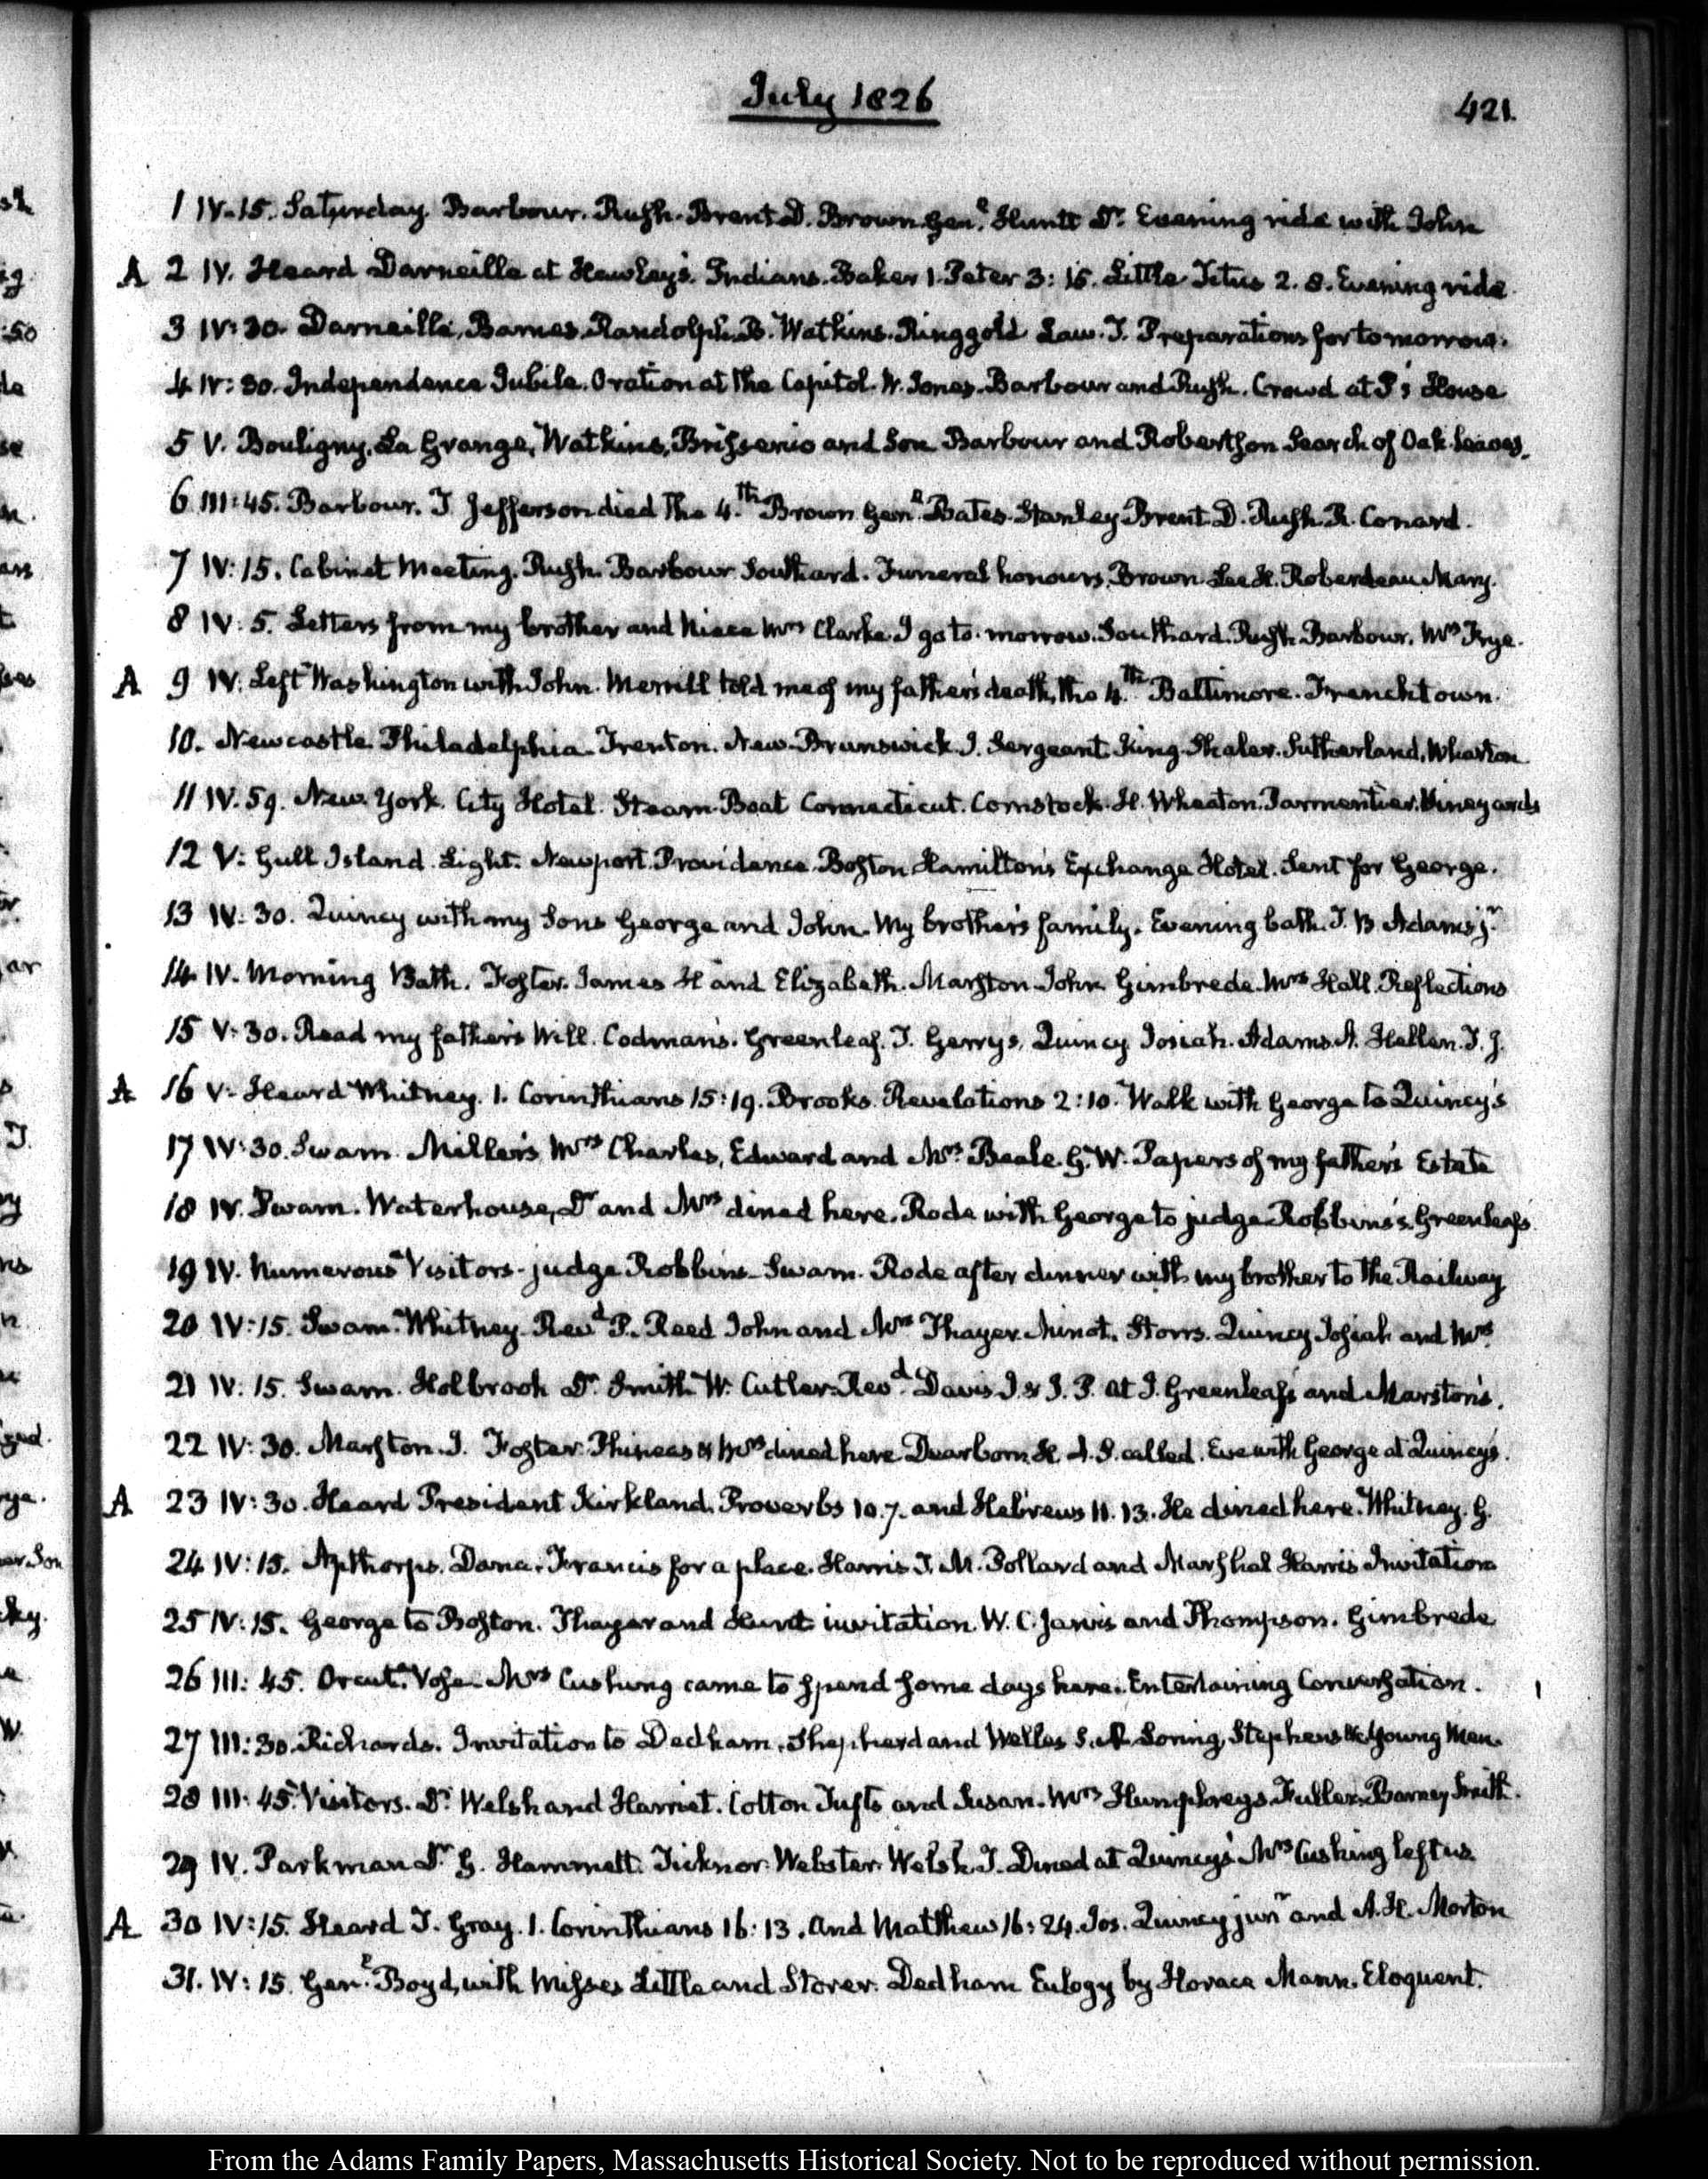 July 1826
421.
1 IV-15. Saturday. Barbour. Rush. Brent D. Brown Gen.l Huntt Dr. Evening ride with John
A 2 IV. Heard Darneille at Hawley's. Indians. Baker 1. Peter 3: 15. Little Titus 2. 8. Evening ride.
3 IV:30. Darneille, Barnes. Randolph. B. Watkins. Ringgold Law. T. Preparations for tomorrow.
4 IV:30. Independence Jubile. Oration at the Capitol. W. Jones. Barbour and Rush. Crowd at P's House
5 V. Bouligny. La Grange, Watkins, and Son Barbour and Robertson Search of Oak leaves.
6 III:45. Barbour. T Jefferson died the 4.th Brown Gen.l Bates. Stanley Brent D. Rush. R. Conard.
7 IV:15. Cabinet Meeting. Rush. Barbour Southard. Funeral honours. Brown. Lee H. Roberdeau Mary.
8 IV. 5. Letters from my brother and Niece Mrs Clarke. I go to-morrow. Southard. Rush. Barbour. Mrs Frye.
A 9 IV. Left Washington with John. Merrill told me of my father's death, the 4.th Baltimore. Frenchtown.
10. Newcastle. Philadelphia. Trenton. New-Brunswick. J. Sergeant. King. Shaler. Sutherland. Wharton
11 IV. 59. New York. City Hotel. Steam-Boat Connecticut. Comstock. H. Wheaton. Parmentier. Vineyards
12 V. Gull Island. Light. Newport. Providence. Boston Hamilton's Exchange Hotel. Sent for George.
13 IV. 30. Quincy with my Sons George and John. My brother's family. Evening bath. T. B Adams jr.
14 IV. Morning Bath. Foster. James H and Elizabeth. Marston John. Gimbrede. Mrs Hall. Reflections
15 V. 30. Read my father's Will. Codman's. Greenleaf. T. Gerrys, Quincy Josiah. Adams. A. Hellen. J. J.
A 16 V. Heard Whitney. 1. Corinthians 15:19. Brooks. Revelations 2:10. Walk with George to Quincy's
17 IV:30. Swam. Miller's Mrs Charles, Edward and Mrs. Beale. G. W. Papers of my father's Estate
18 IV. Swam. Waterhouse, Dr and Mrs dined here. Rode with George to judge Robbins's. Greenleaf's
19 IV. Numerous Visitors - judge Robbins - Swam. Rode after dinner with my brother to the Railway
20 IV:15. Swam. Whitney. Revd P. Reed John and Mrs Thayer. Minot. Storrs. Quincy Josiah and Mrs.
21 IV. 15. Swam. Holbrook Dr. Smith. W. Cutler. Revd. Davis J. & J. P. at J. Greenleaf's and Marston's.
22 IV:30. Marston. J. Foster. Phineas & Mrs dined here. Dearborn. H. A. S. called. Eve with George at Quincy's.
A 23 IV:30. Heard President Kirkland. Proverbs 10. 7. and Hebrews 11. 13. He dined here. Whitney. G.
24 IV:15. Apthorps. Dana. Francis for a place. Harris. T. M. Pollard and Marshal Harris Invitation
25 IV:15. George to Boston. Thayer and Hunt invitation. W. C. Jarvis and Thompson. Gimbrede
26 III:45. Orcutt. Vose. Mrs Cushing came to spend some days here. Entertaining Conversation.
27 III:30. Richards. Invitation to Dedham. Shepherd and Welles S. A. Loring, Stephens &c. Young Men.
28 III:45. Visitors. Dr. Welsh and Harriet. Cotton Tufts and Susan. Mrs Humphreys. Fuller. Barney Smith.
29 IV. Parkman Dr. G. Hammatt. Ticknor. Webster. Welsh T. Dined at Quincy's Mrs Cushing left us
A 30 IV:15. Heard T. Gray. 1. Corinthians 16:13. and Matthew 16:24. Jos. Quincy junr and A. H. Morton
31. IV:15. Gen.l Boyd, with Misses Little and Storer. Dedham Eulogy by Horace Mann. Eloquent.
From the Adams Family Papers, Massachusetts Historical Society. Not to be reproduced without permission.